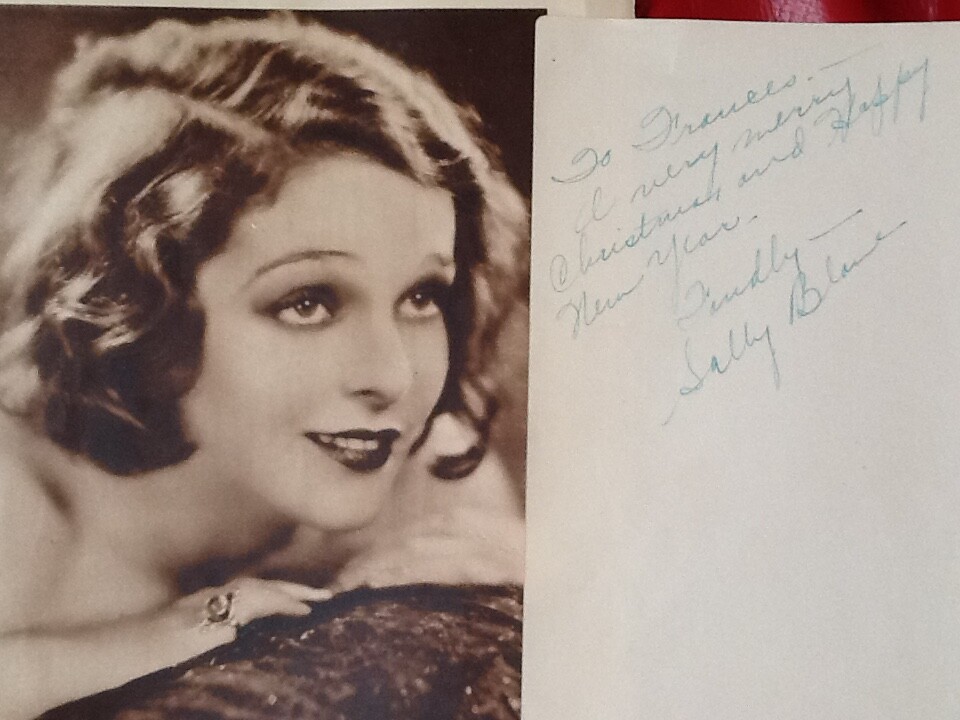 To Frances. —
A very merry
Christmas and Happy
New Year.
Fondly —
Sally Blane